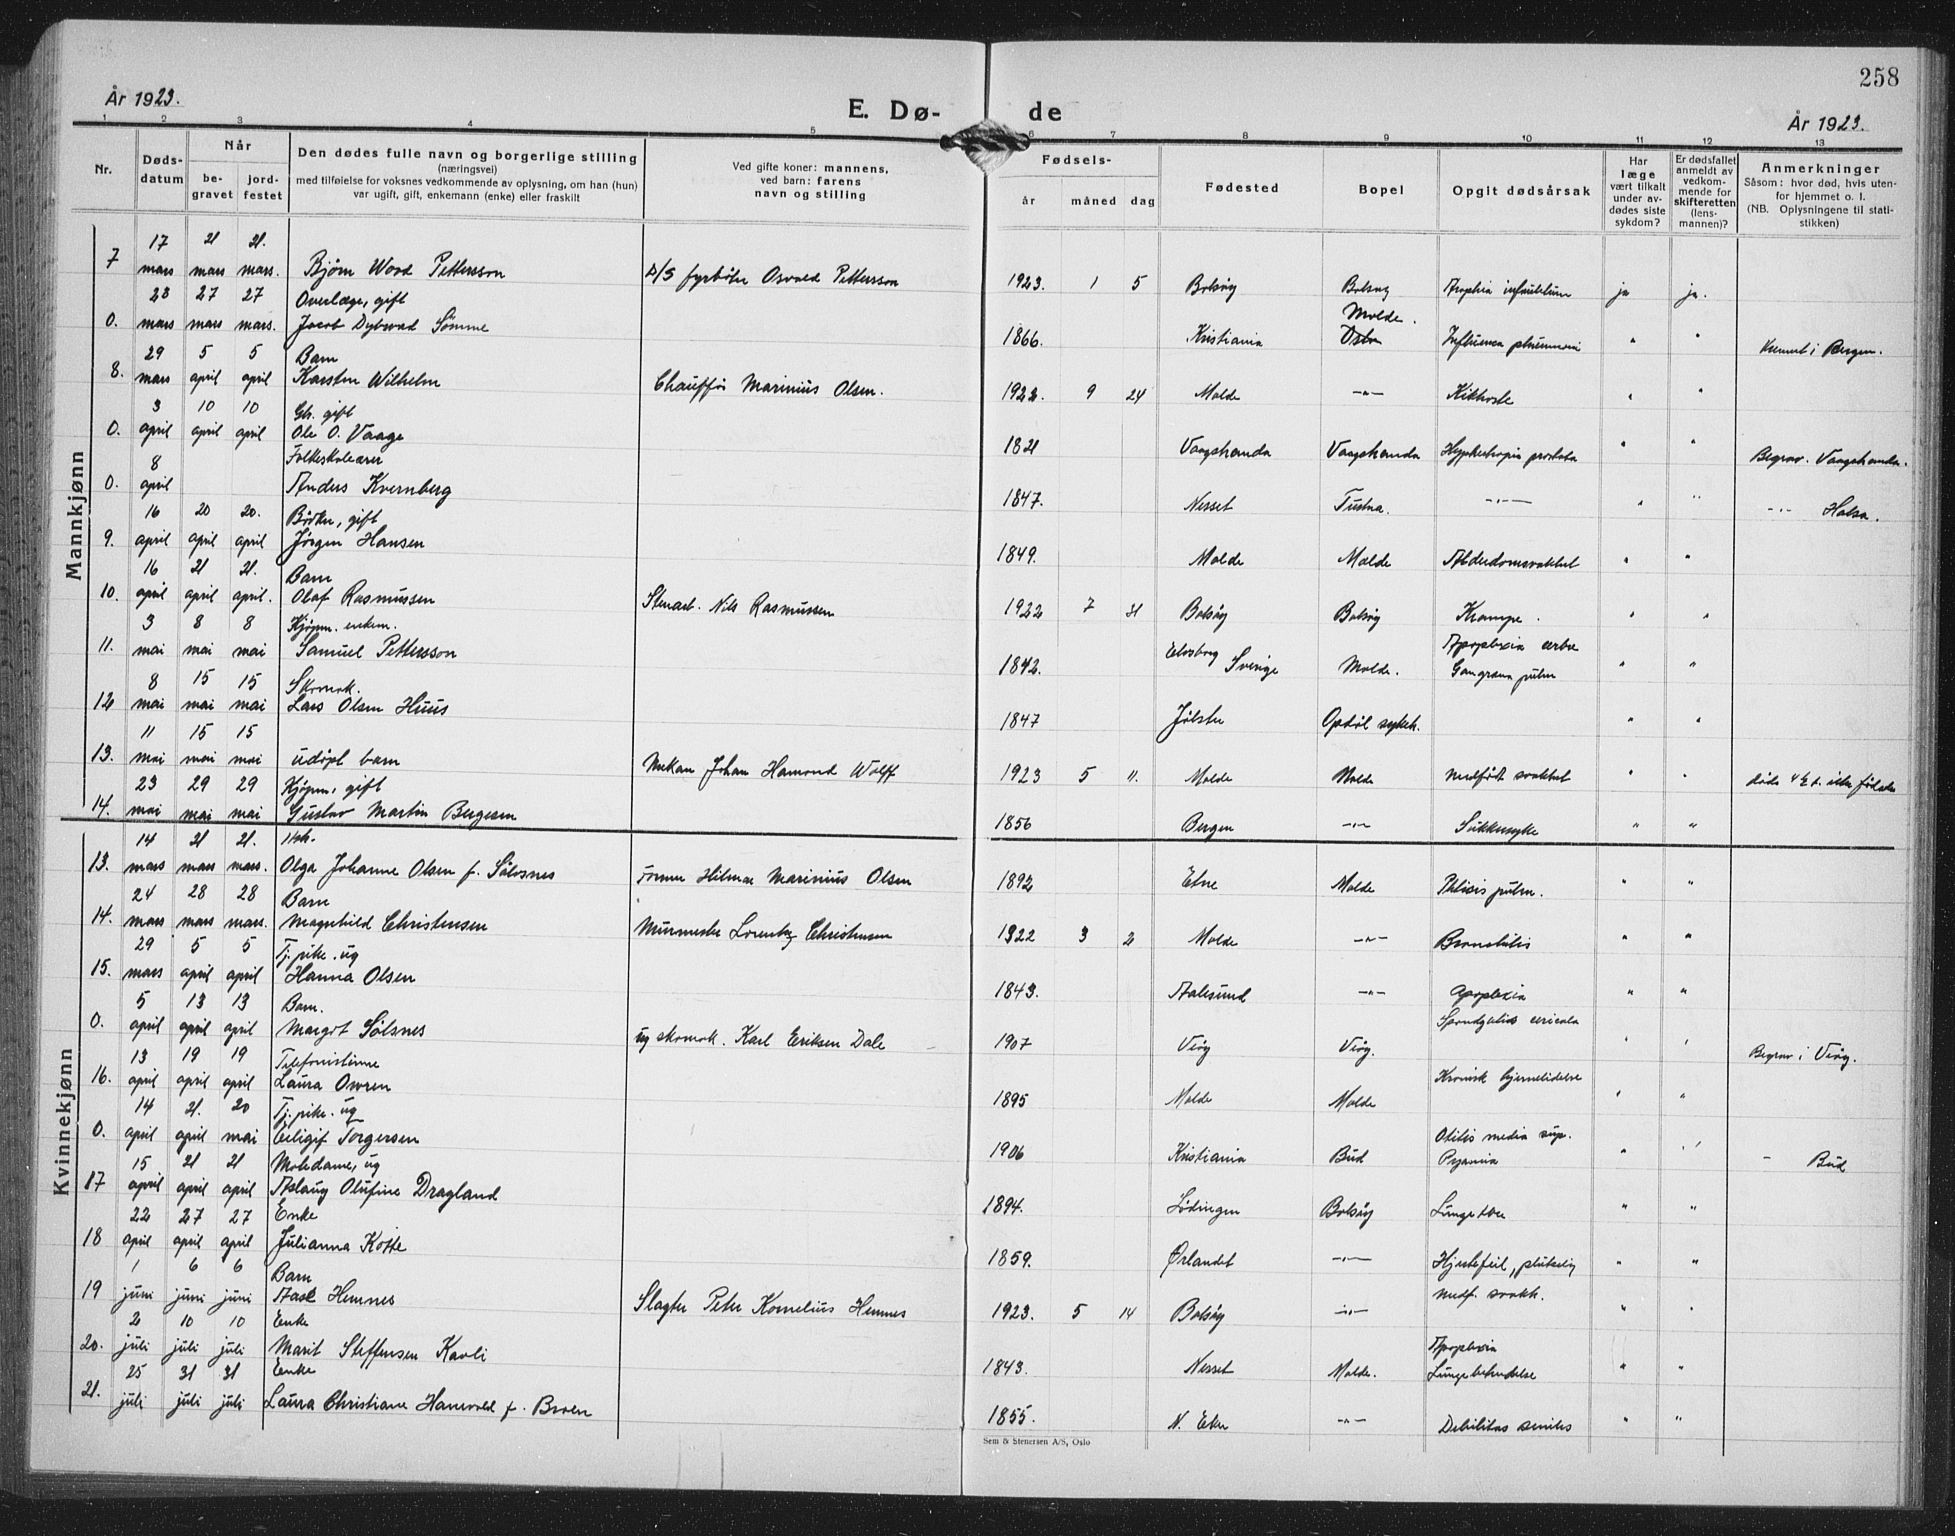 258
År 1923.
E. Dø- de
År 1923.
1 2 3 4 5 6 7 8 9 10 11 12 13
Nr.
Døds-
datum
Når
be-
gravet
jord-
festet
Den dødes fulle navn og borgerlige stilling
(næringsvei)
med tilføielse for voksnes vedkommende av oplysning, om han (hun)
var ugift, gift, enkemann (enke) eller fraskilt
Ved gifte koner: mannens,
ved barn: farens
navn og stilling
Fødsels-
år måned dag
Fødested
Bopel
Opgit dødsårsak
Har
læge
vært tilkalt
under av-
dødes siste
sykdom?
Er dødsfallet
anmeldt av
vedkom-
mende for
skifteretten
(lens-
mannen)?
Anmerkninger
Såsom: hvor død, hvis uten-
for hjemmet o. l.
(NB. Oplysningene til stati-
stikken)
Mannkjønn
17 21 21.
7 mars mars mars. Bjørn Wood Pettersson D/S fyrbøter Osvald Pettersson 1923. 1 5 Bolsøy Bolsøy Atrophia infantilum ja ja.
23 27 27 Overlæge, gift Molde.
0. mars mars mars. Jacob Dybwad Sömme 1866. Kristiania Influenca pneumoni " " Kremert i Bergen.
29 5 5 Barn
8. mars april april Karsten Wilhelm Chauffør Marinius Olsen. 1922. 9 24 Molde -"- Kikhoste " "
3 10 10 Gb. gift
0. april april april Ole O. Vaage 1821 Vaagstranda Vaagstranda Hypertropia prostata " " Begrav. Vaagstranda.
8 Folkeskolelærer
0. april Anders Kvernberg 1847. Nesset Tustna. -"- " " -"- Halsa.
16 20 20. Bødker, gift
9. april april april Jørgen Hansen 1849. Molde Molde Alderdomssvakhet " "
16 21 21. Barn
10. april april april. Olaf Rasmussen Stenarb. Nils Rasmussen 1922 7 31 Bolsøy Bolsøy Krampe. " "
3 8 8 Kjøpm. enkem. Apoplexia cerbre
11. mai mai mai Samuel Pettersson 1842. Elvsborg Sverige Molde. Gangræna pulm " "
8 15 15 Skomak.
12 mai mai mai Lars Olsen Huus 1847 Jølster Opdøl sykeh. " "
11 15 15
13. mai mai mai udøpt barn Mekan Johan Hamond Wolff 1923 5 11. Molde Molde medfødt svakhet " "
23 29 29 Kjøpm. gift
14. mai mai mai Gustav Martin Bergesen 1856 Bergen -"- Sukkersyke " "
Kvinnekjønn
14 21 21. Hstr.
13. mars mars mars. Olga Johanne Olsen f. Sølsnes Former Hilmar Marinius Olsen 1892 Etne Molde Phtisis pulm. " "
24 28 28 Barn
14. mars mars mars. Magnhild Christensen Murmester Lorentz Christensen 1922 3 2 Molde -"- Bronchitis " "
29 5 5 Tj. pike. ug
15. mars april april Hanna Olsen 1843. Aalesund -"- Apoplexia " "
5 13 13 Barn. Spondylitis cericala
0. april april april Margot Sølsnes ug skomak. Karl Eriksen Dale 1907 Veøy Veøy. " " Begrav i Veøy.
13 19 19 Telefonistinne Kronisk hjernelidelse
16. april april april Laura Owren 1895 Molde Molde " "
14 21. 20 Tj. pike. ug Otitis media sup.
0. april april mai Eiligif Torgersen 1906 Kristiania Bud Pyæmia " " - Bud
15 21 21 Motedame, ug
17 april april april Aslaug Olufine Dragland 1894. Lødingen Bolsøy Lungetbc " "
22 27 27 Enke
18 april april april Julianna Kotte 1859. Ørlandet -"- Hjertefeil, plutselig " "
1 6 6 Barn medf. svakh.
19 juni juni juni Aase Hemnes Slagter Peter Kornelius Hemnes 1923. 5 14 Bolsøy -"- " "
2 10 10 Enke Apoplexia
20. juli juli juli Marit Steffensen Kavli 1843. Nesset Molde. Lungebetendelse " "
25 31 31 Enke
21. juli juli juli Laura Christiane Hanevold f. Broen 1855. N. Eker -"- Debilitas senilis " "
Sem & Stenersen A/S, Oslo